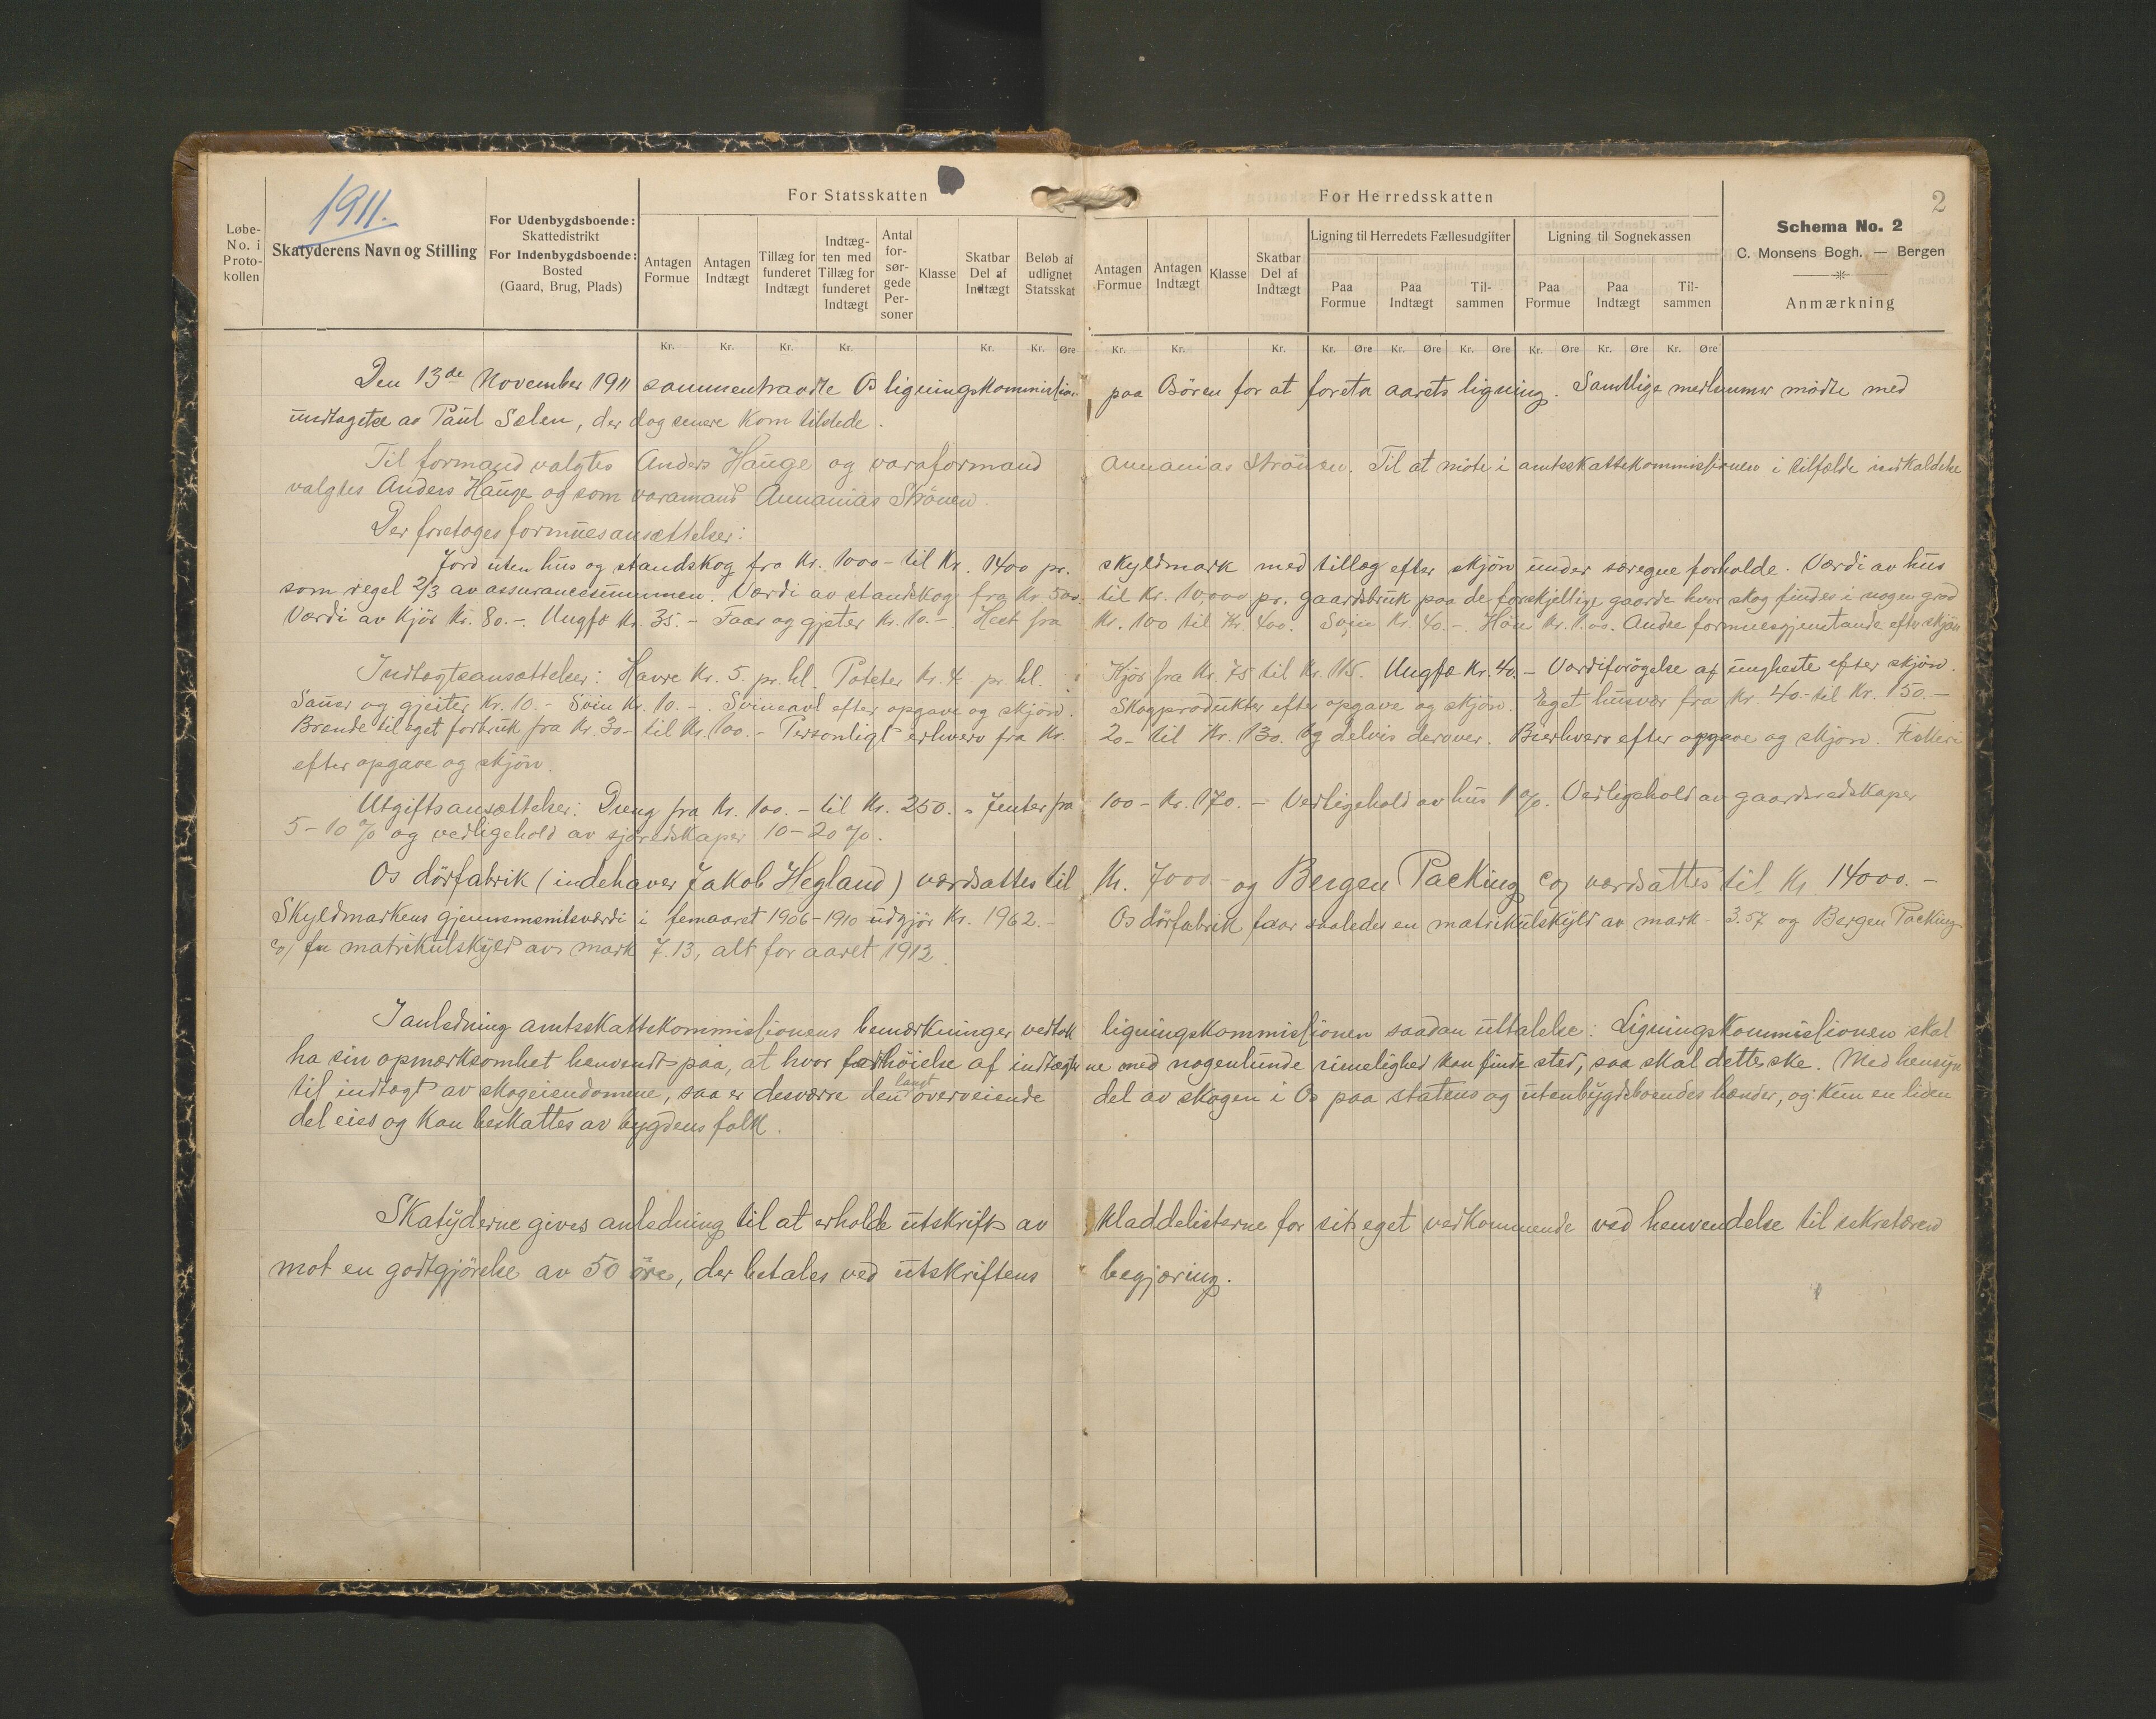 1911.
2
Løbe-No. i Proto-kollen
Skatyderens Navn og Stilling
For Udenbygdsboende:
Skattedistrikt
For Indenbygdsboende:
Bosted
(Gaard, Brug, Plads)
For Statsskatten
Antagen Formue
Antagen Indtægt
Tillæg for funderet Indtægt
Indtæg-ten med Tillæg for funderet Indtægt
Antal for-sør-gede Per-soner
Klasse
Skatbar Del af Indtægt
Beløb af udlignet Statsskat
For Herredsskatten
Antagen Formue
Antagen Indtægt
Klasse
Skatbar Del af Indtægt
Ligning til Herredets Fællesudgifter
Paa Formue
Paa Indtægt
Til-sammen
Ligning til Sognekassen
Paa Formue
Paa Indtægt
Til-sammen
Schema No. 2
C. Monsens Bogh. — Bergen
Anmærkning
Kr. Kr. Kr. Kr. Kr. Kr. Øre Kr. Kr. Kr. Kr. Øre Kr. Øre Kr. Øre Kr. Øre Kr. Øre Kr. Øre
Den 13de November 1911 sammentraadte Os ligningskommission paa Osøren for at foreta aarets ligning. Samtlige medlemmer mødte med
undtagelse av Paul Sælen, der dog senere kom tilstede.
Til formand valgtes Anders Hauge og varaformand Annanias Strönen. Til at møte i amtsskattekommissionen i tilfælde indkaldelse
valgtes Anders Hauge og som varamand Annanias Strönen.
Der foretages formuesansættelser:
Jord uten hus og standskog fra Kr. 1000 - til Kr. 1400 pr. skyldmark med tillæg efter skjön under særegne forholde. Værdi av hus
som regel 2/3 av assurancesummen. Værdi av standskog fra Kr 500. til Kr. 10,000 pr. gaardsbruk paa de forskjellige gaarde hvor skog findes i nogen grad
Værdi av Kjör Kr. 80.-. Ungfæ Kr. 35.- Faar og gjeter Kr. 10.-. Hest fra Kr. 100 til Kr. 400. Svin Kr. 40.-. Höns Kr. 1.00. Andre formuesgjenstande efter skjön
Indtægtsansættelser: Havre Kr. 5. pr. hl. Poteter Kr. 4 pr hl. Kjör fra Kr. 75 til Kr. 115. Ungfæ Kr. 40.- Værdiforögelse af ungheste efter skjön.
Sauer og gjeiter Kr. 10.- Svin Kr. 10.-. Svineavl efter opgave og skjön. Skogprodukter efter opgave og skjön. Eget husvær fra Kr 40.- til Kr. 150.-
Brænde til eget forbruk fra Kr. 30- til Kr. 100.- Personligt erhverv fra Kr. 20- til Kr. 130. og delvis derover. Bierhverv efter opgave og skjön. Fiskeri
efter opgave og skjön.
Utgiftsansættelser: Dreng fra Kr. 100.- til Kr. 250.- Jenter fra 100 - Kr. 170.- Vedligehold av hus 1 %. Vedligehold av gaardsredskaper
5-10 % og vedligehold av sjöredskaper 10-20 %.
Os dörfabrik (indehaver Jakob Hegland) værdsattes til Kr. 7000.- og Bergen Packing Co/ værdsattes til Kr 14000.-
Skyldmarkens gjennemsnitsværdi i femaaret 1906-1910 udgjör Kr. 1962.- Os dörfabrik faar saaledes en matrikulskyld av mark 3.57 og Bergen Packing
Co/ en matrikulskyld av mark 7.13, alt for aaret 1912.
I anledning amtsskattekommissionens bemærkninger vedtok ligningskommissionen saadan uttalelse: Ligningskommissionen skal
ha sin opmærksomhet henvendt paa, at hvor forhöielse af indtægterne med nogenlunde rimelighed kan finde sted, saa skal dette ske. Med hensyn
til indtægt av skogeiendomme, saa er desværre den langt overveiende del av skogen i Os paa statens og utenbygdsboendes hænder, og kun en liden
del eies og kan beskattes av bygdens folk.
Skatyderne gives anledning til at erholde utskrift av kladdelisterne for sit eget vedkommende ved henvendelse til sekretæren
mot en godtgjörelse av 50 öre, der betales ved utskriftens begjæring.